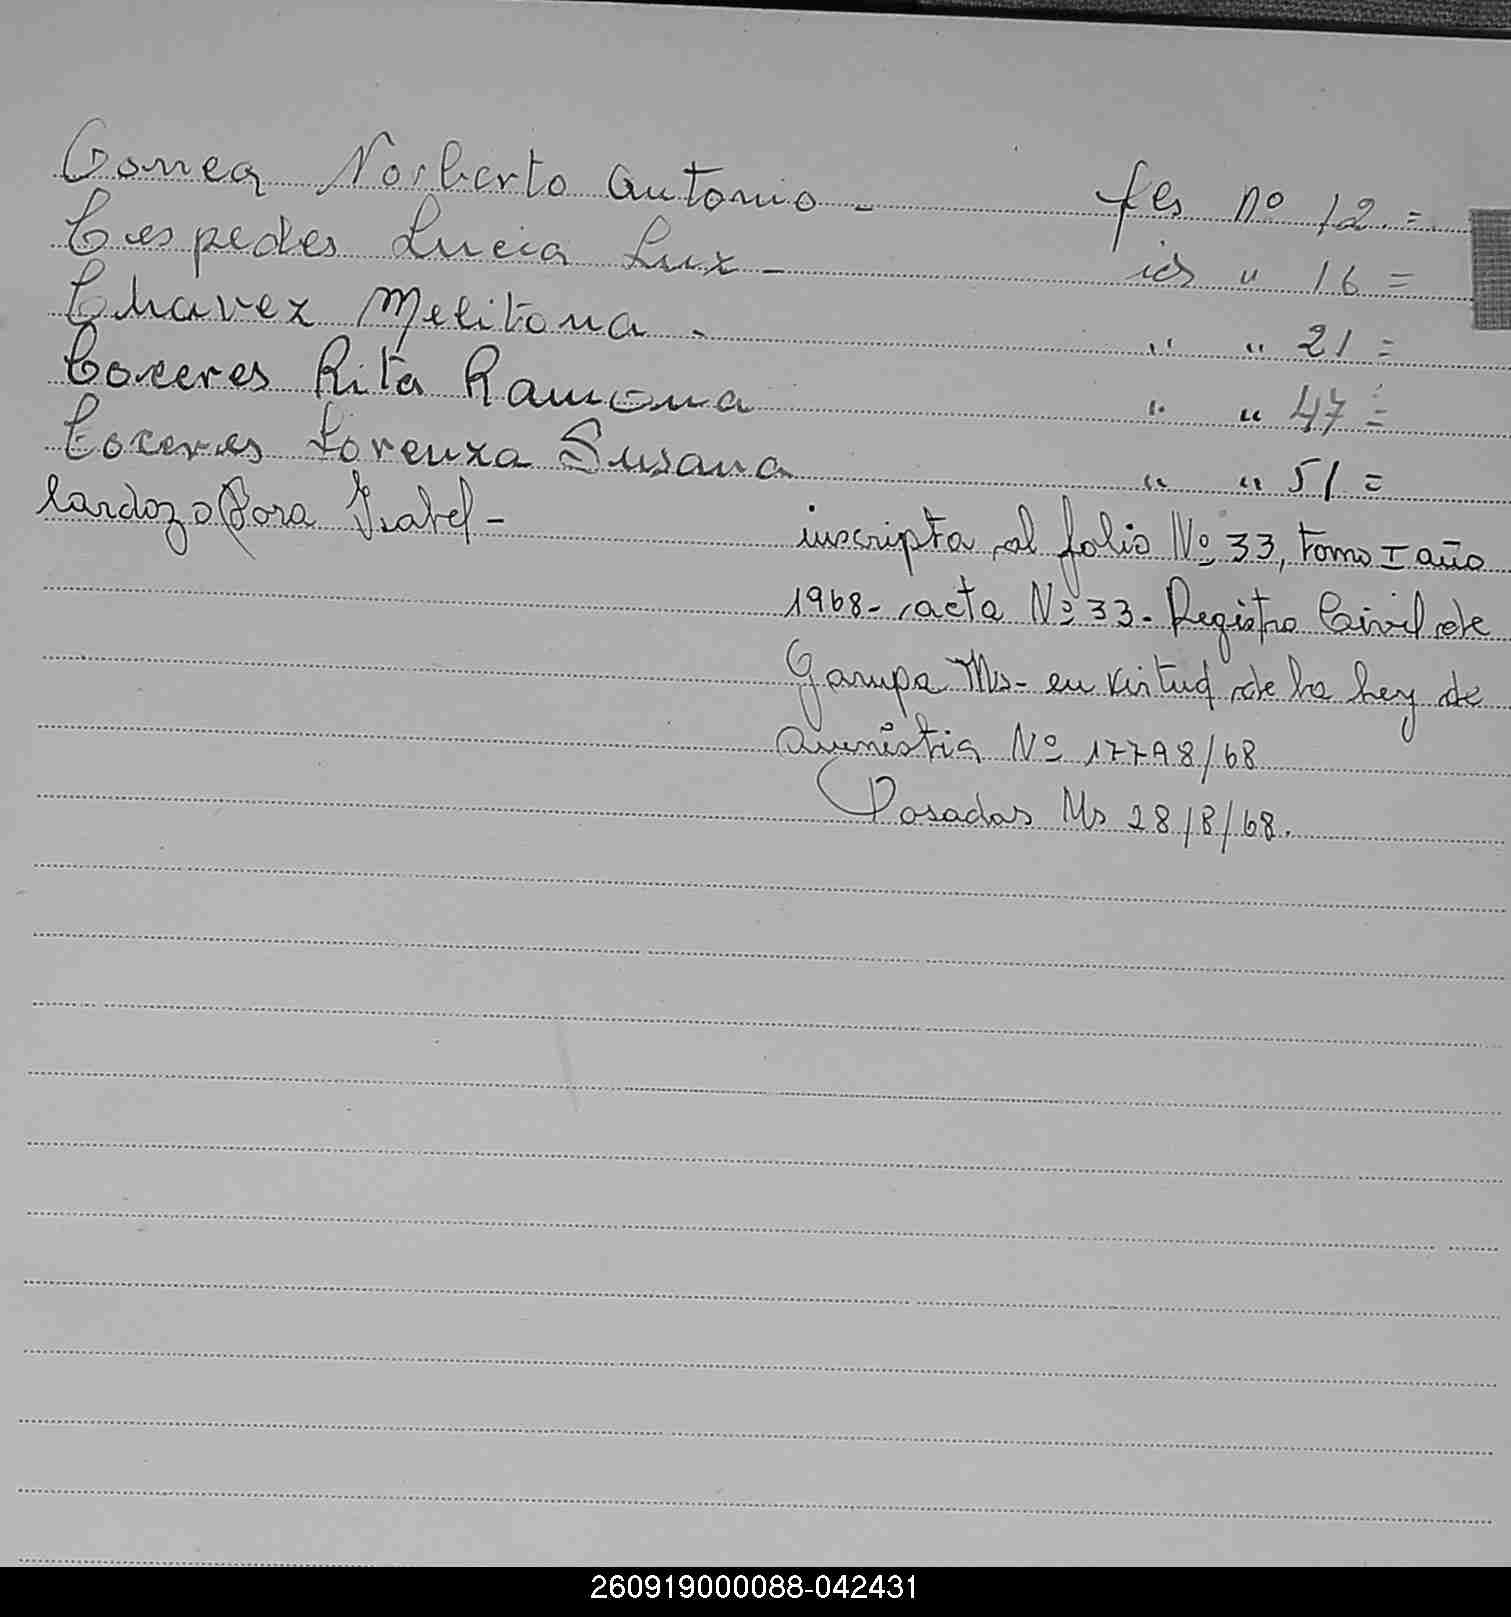 Correa Norberto Antonio - fls nº 12 =
Cespedes Lucia Luz - id " 16 =
Chavez Melitona - " " 21 =
Coceres Rita Ramona " " 47 =
Coceres Lorenza Susana " " 51 =
Cardozo Dora Isabel - inscripta al folio Nº 33, tomo I año
1968 - acta Nº 33 - Registro Civil de
Garupa Ms - en virtud de la ley de
amnistia Nº 17798/68
Posadas Ms 28/8/68.
260919000088-042431